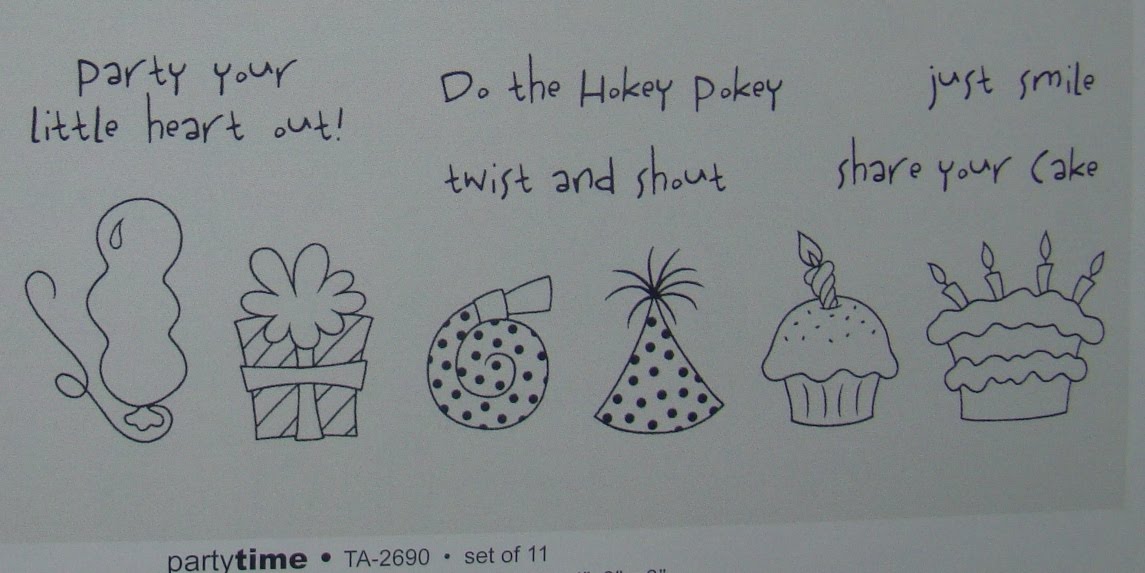 party your
little heart out!
Do the Hokey Pokey
twist and shout
just smile
share your cake
partytime • TA-2690 • set of 11